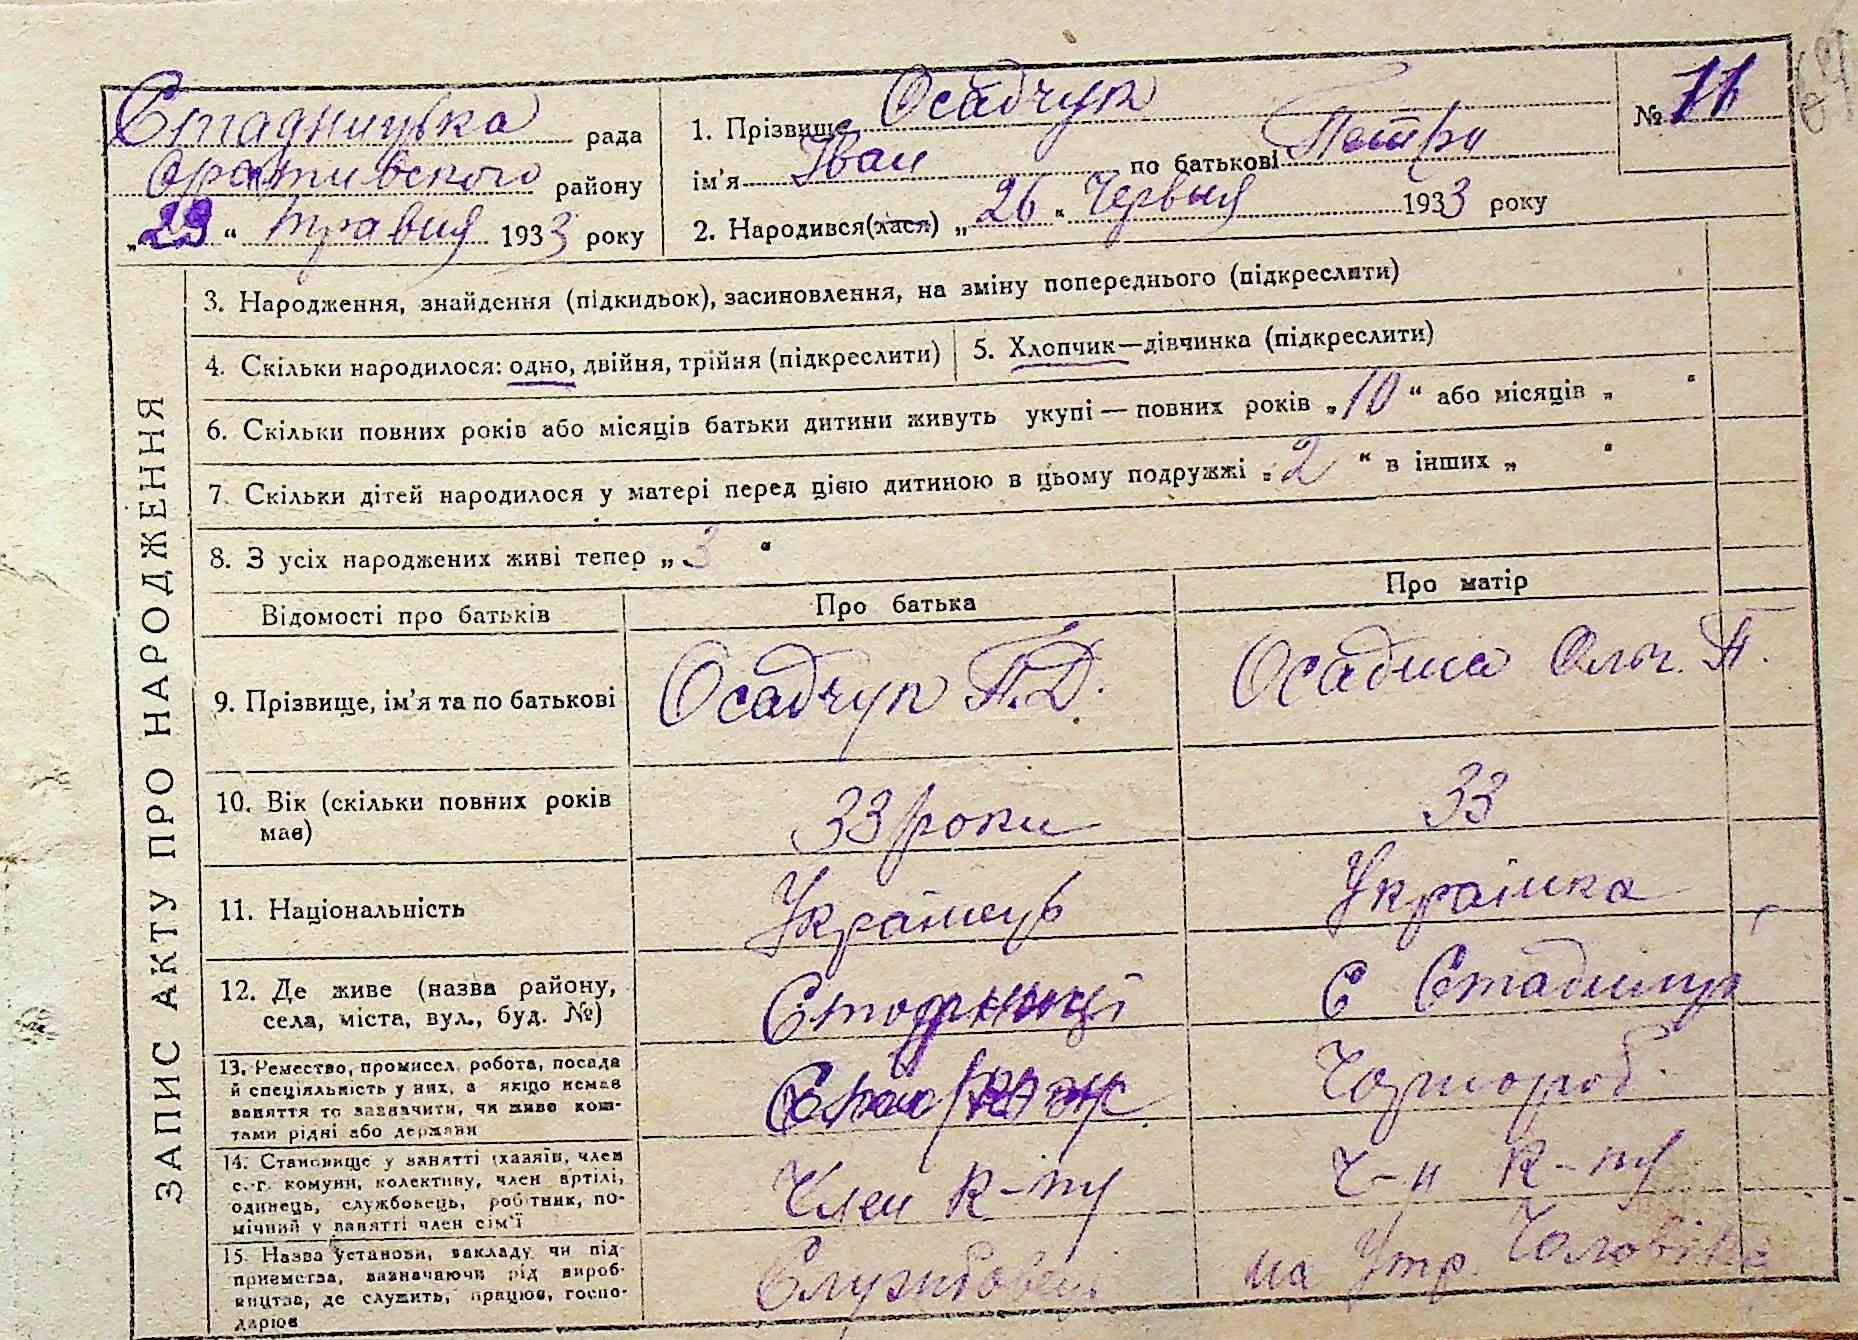 Стадницька рада
Оратівського району
„29“ травня 1933 року
1. Прізвище Осадчук
ім'я Іван по батькові Петро
№ 11
2. Народився(лася) „26“ Червня 1933 року
ЗАПИС АКТУ ПРО НАРОДЖЕННЯ
3. Народження, знайдення (підкидьок), засиновлення, на зміну попереднього (підкреслити)
4. Скільки народилося: одно, двійня, трійня (підкреслити)
5. Хлопчик—дівчинка (підкреслити)
6. Скільки повних років або місяців батьки дитини живуть укупі — повних років „10“ або місяців „ “
7. Скільки дітей народилося у матері перед цією дитиною в цьому подружжі „2“ в інших „ “
8. З усіх народжених живі тепер „3“
Відомості про батьків
Про батька
Про матір
9. Прізвище, ім'я та по батькові
Осадчук П.Д.
Осадча Ольг. П.
10. Вік (скільки повних років
має)
33 роки
33
11. Національність
Українець
Українка
12. Де живе (назва району,
села, міста, вул., буд. №)
Стадниці
С Стадниця
13. Ремество, промисел, робота, посада
й спеціяльність у них, а якщо немає
заняття то зазначити, чи живе кош-
тами рідні або держави
Чорнороб.
14. Становище у занятті (хазяїн, член
с.-г. комуни, колективу, член артілі,
одинець, службовець, робітник, по-
мічний у занятті член сім'ї
Член К-пу
Ч-н К-пу
15. Назва установи, закладу чи під-
приємства, зазначаючи рід вироб-
ництва, де служить, працює, госпо-
дарює
Службовець
на Утр. Чоловіка